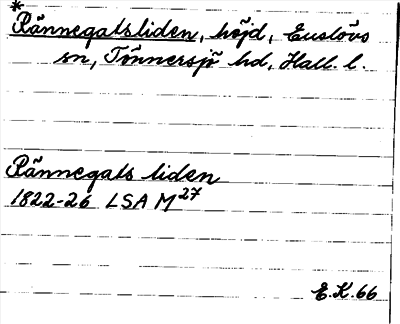 *Rännegatsliden, höjd, Euslövs
sn, Tönnersjö hd, Hall. l.
Rännegats liden
1822-26 LSA M27
E.K.66